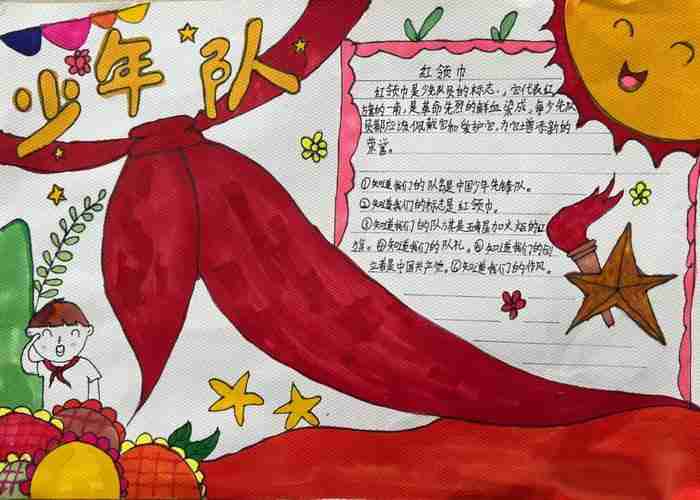 少年队
红领巾
红领巾是少先队员的标志,它代表红
旗的一角,是革命先烈的鲜血染成,每个先队
员都应该佩戴它和爱护它,为它增添新的
荣誉。
①知道我们的队名是中国少年先锋队。
②知道我们的标志是红领巾。
③知道我们的队旗是五角星加火炬的红
旗。④知道我们的队礼。⑤知道我们的创
立者是中国共产党。⑥知道我们的作风。